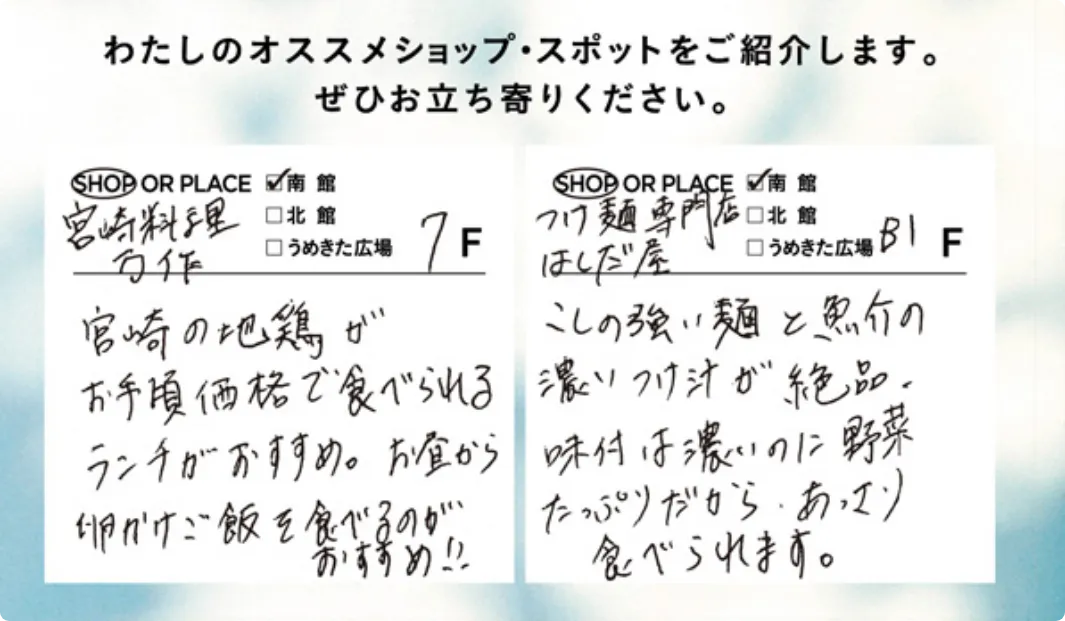 わたしのオススメショップ・スポットをご紹介します。
ぜひお立ち寄りください。
SHOP OR PLACE ☑南館
宮崎料理
□北館
万作
□うめきた広場
7 F
宮崎の地鶏が
お手頃価格で食べられる
ランチがおすすめ。お昼から
卵かけご飯を食べるのが
おすすめ!!
SHOP OR PLACE ☑南館
つけ麺専門店
□北館
はしだ屋
□うめきた広場
B1 F
こしの強い麺と魚介の
濃いつけ汁が絶品、
味付は濃いのに野菜
たっぷりだから、あっさり
食べられます。